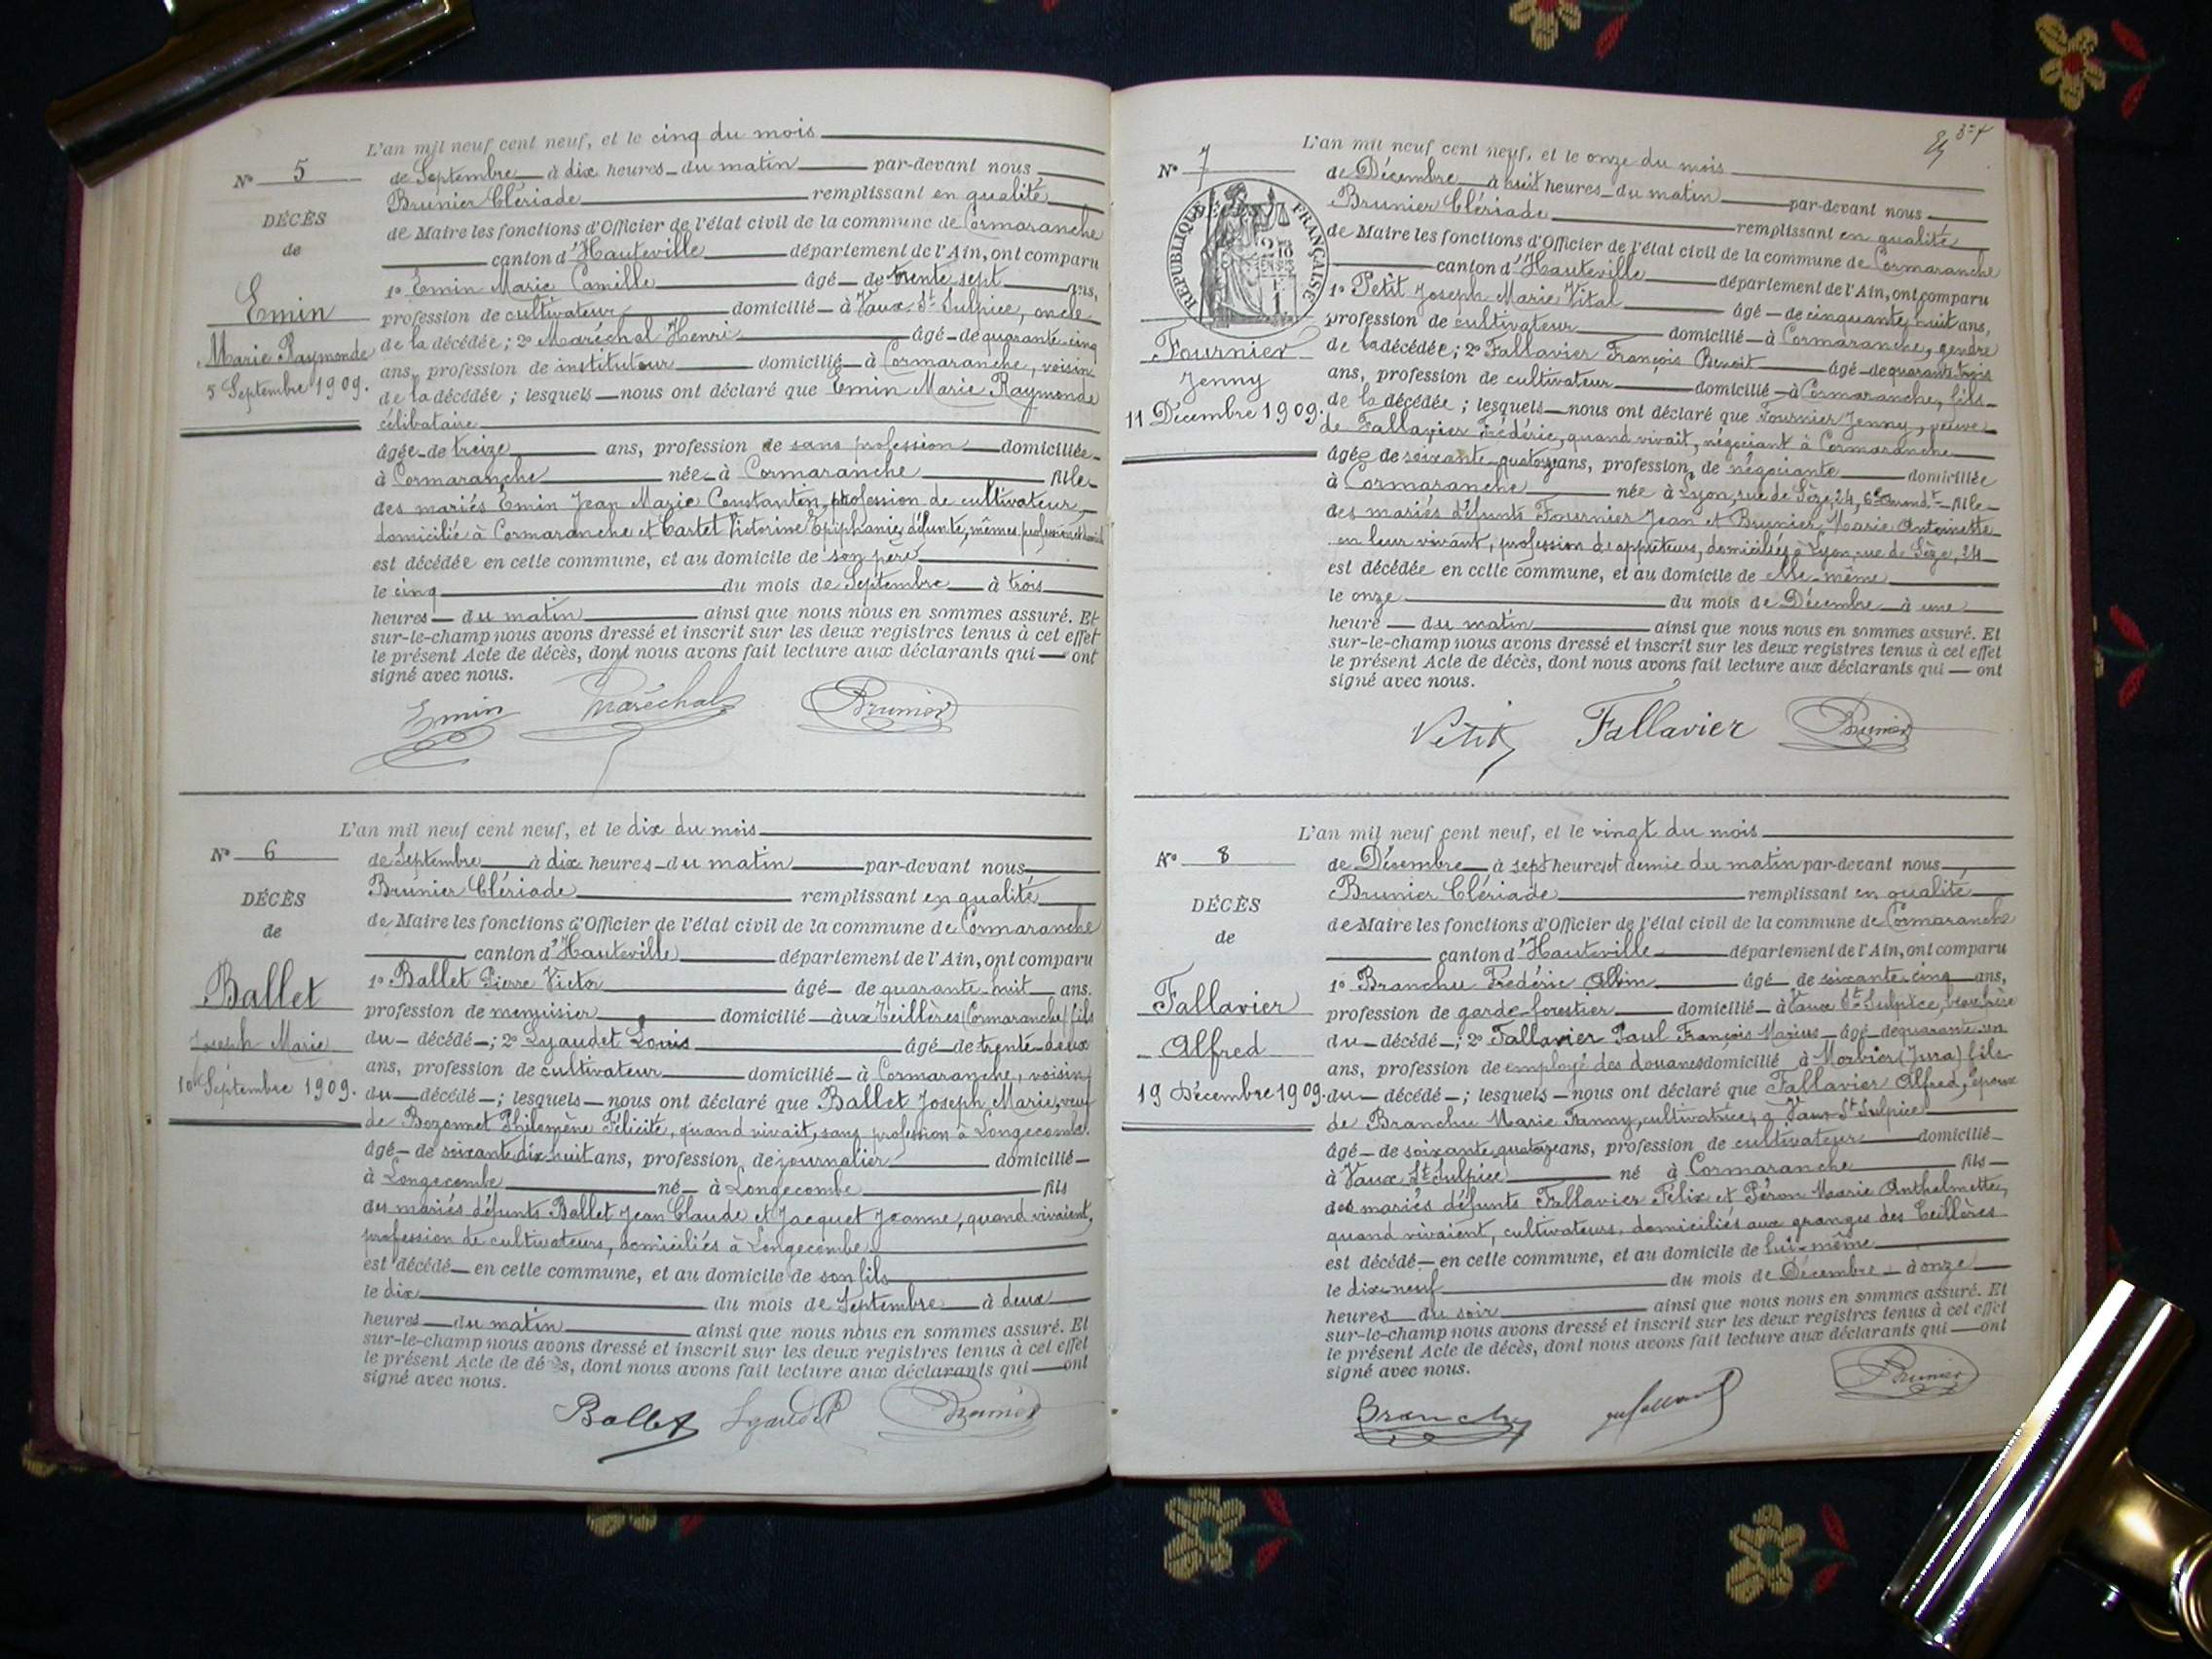 L'an mil neuf cent neuf, et le cinq du mois
N° 5
de Septembre à dix heures du matin par-devant nous
Brunier Clériade remplissant en qualité
DÉCÈS
de Maire les fonctions d'Officier de l'état civil de la commune de Cormaranche
de
canton d'Hauteville département de l'Ain, ont comparu
1° Emin Marie Camille âgé de trente sept ans,
Emin
profession de cultivateur domicilié à Vaux-St Sulpice, oncle
Marie Raymonde
de la décédée; 2° Maréchal Henri âgé de quarante cinq
5 Septembre 1909.
ans, profession de instituteur domicilié à Cormaranche, voisin
de la décédée; lesquels nous ont déclaré que Emin Marie Raymonde
célibataire
âgée de treize ans, profession de sans profession domiciliée
à Cormaranche née à Cormaranche fille
des mariés Emin Jean Marie Constantin, profession de cultivateur
domicilié à Cormaranche et Cartet Victorine Epiphanie, défunte, mêmes profession
est décédée en cette commune, et au domicile de son père
le cinq du mois de Septembre à trois
heures du matin ainsi que nous nous en sommes assuré. Et
sur-le-champ nous avons dressé et inscrit sur les deux registres tenus à cet effet
le présent Acte de décès, dont nous avons fait lecture aux déclarants qui ont
signé avec nous.
Emin Maréchal Brunier
L'an mil neuf cent neuf, et le dix du mois
N° 6
de Septembre à dix heures du matin par-devant nous
Brunier Clériade remplissant en qualité
DÉCÈS
de Maire les fonctions d'Officier de l'état civil de la commune de Cormaranche
de
canton d'Hauteville département de l'Ain, ont comparu
1° Ballet Pierre Victor âgé de quarante-huit ans.
Ballet
profession de menuisier domicilié aux Teillères (Cormaranche) fils
Joseph Marie
du décédé; 2° Lyaudet Louis âgé de trente-deux
10 Septembre 1909.
ans, profession de cultivateur domicilié à Cormaranche, voisin
du décédé; lesquels nous ont déclaré que Ballet Joseph Marie, veuf
de Bozonnet Philomène Félicité, quand vivait, sans profession à Longecombe.
âgé de soixante dix-huit ans, profession de journalier domicilié
à Longecombe né à Longecombe fils
des mariés défunts Ballet Jean Claude et Jacquet Jeanne, quand vivaient,
profession de cultivateurs, domiciliés à Longecombe
est décédé en cette commune, et au domicile de son fils
le dix du mois de Septembre à deux
heures du matin ainsi que nous nous en sommes assuré. Et
sur-le-champ nous avons dressé et inscrit sur les deux registres tenus à cet effet
le présent Acte de dé s, dont nous avons fait lecture aux déclarants qui ont
signé avec nous.
Ballet Lyaudet Brunier
L'an mil neuf cent neuf, et le onze du mois
N° 7
de Décembre à huit heures du matin par-devant nous
Brunier Clériade remplissant en qualité
RÉPUBLIQUE FRANÇAISE
de Maire les fonctions d'Officier de l'état civil de la commune de Cormaranche
canton d'Hauteville département de l'Ain, ont comparu
1° Petit Joseph Marie Vital âgé de cinquante huit ans,
profession de cultivateur domicilié à Cormaranche, gendre
Fournier
de la décédée; 2° Fallavier François Benoit âgé de quarante trois
Jenny
ans, profession de cultivateur domicilié à Cormaranche, fils
11 Décembre 1909.
de la décédée; lesquels nous ont déclaré que Fournier Jenny, veuve
de Fallavier Frédéric, quand vivait, négociant à Cormaranche
âgée de soixante quatorze ans, profession de négociante domiciliée
à Cormaranche née à Lyon, rue de Sèze, 24, 6e arrondt fille
des mariés défunts Fournier Jean et Brunier Marie Antoinette
en leur vivant, profession de appréteurs, domiciliés à Lyon, rue de Sèze, 24
est décédée en cette commune, et au domicile de elle-même
le onze du mois de Décembre à une
heure du matin ainsi que nous nous en sommes assuré. Et
sur-le-champ nous avons dressé et inscrit sur les deux registres tenus à cet effet
le présent Acte de décès, dont nous avons fait lecture aux déclarants qui ont
signé avec nous.
Petit Fallavier Brunier
L'an mil neuf cent neuf, et le vingt du mois
N° 8
de Décembre à sept heures et demie du matin par-devant nous
Brunier Clériade remplissant en qualité
DÉCÈS
de Maire les fonctions d'Officier de l'état civil de la commune de Cormaranche
de
canton d'Hauteville département de l'Ain, ont comparu
1° Branchu Frédéric Albin âgé de soixante cinq ans,
Fallavier
profession de garde-forestier domicilié à Vaux St Sulpice, beau-frère
Alfred
du décédé; 2° Fallavier Paul François Marius âgé de quarante-un
ans, profession de employé des douanes domicilié à Morbier (Jura) fils
19 Décembre 1909.
du décédé; lesquels nous ont déclaré que Fallavier Alfred, époux
de Branchu Marie Fanny, cultivatrice, à Vaux-St Sulpice
âgé de soixante quatorze ans, profession de cultivateur domicilié
à Vaux St Sulpice né à Cormaranche fils
des mariés défunts Fallavier Félix et Péron Marie Anthelmette,
quand vivaient, cultivateurs, domiciliés aux granges des Teillères
est décédé en cette commune, et au domicile de lui-même
le dix-neuf du mois de Décembre à onze
heures du soir ainsi que nous nous en sommes assuré. Et
sur-le-champ nous avons dressé et inscrit sur les deux registres tenus à cet effet
le présent Acte de décès, dont nous avons fait lecture aux déclarants qui ont
signé avec nous.
Branchu Brunier